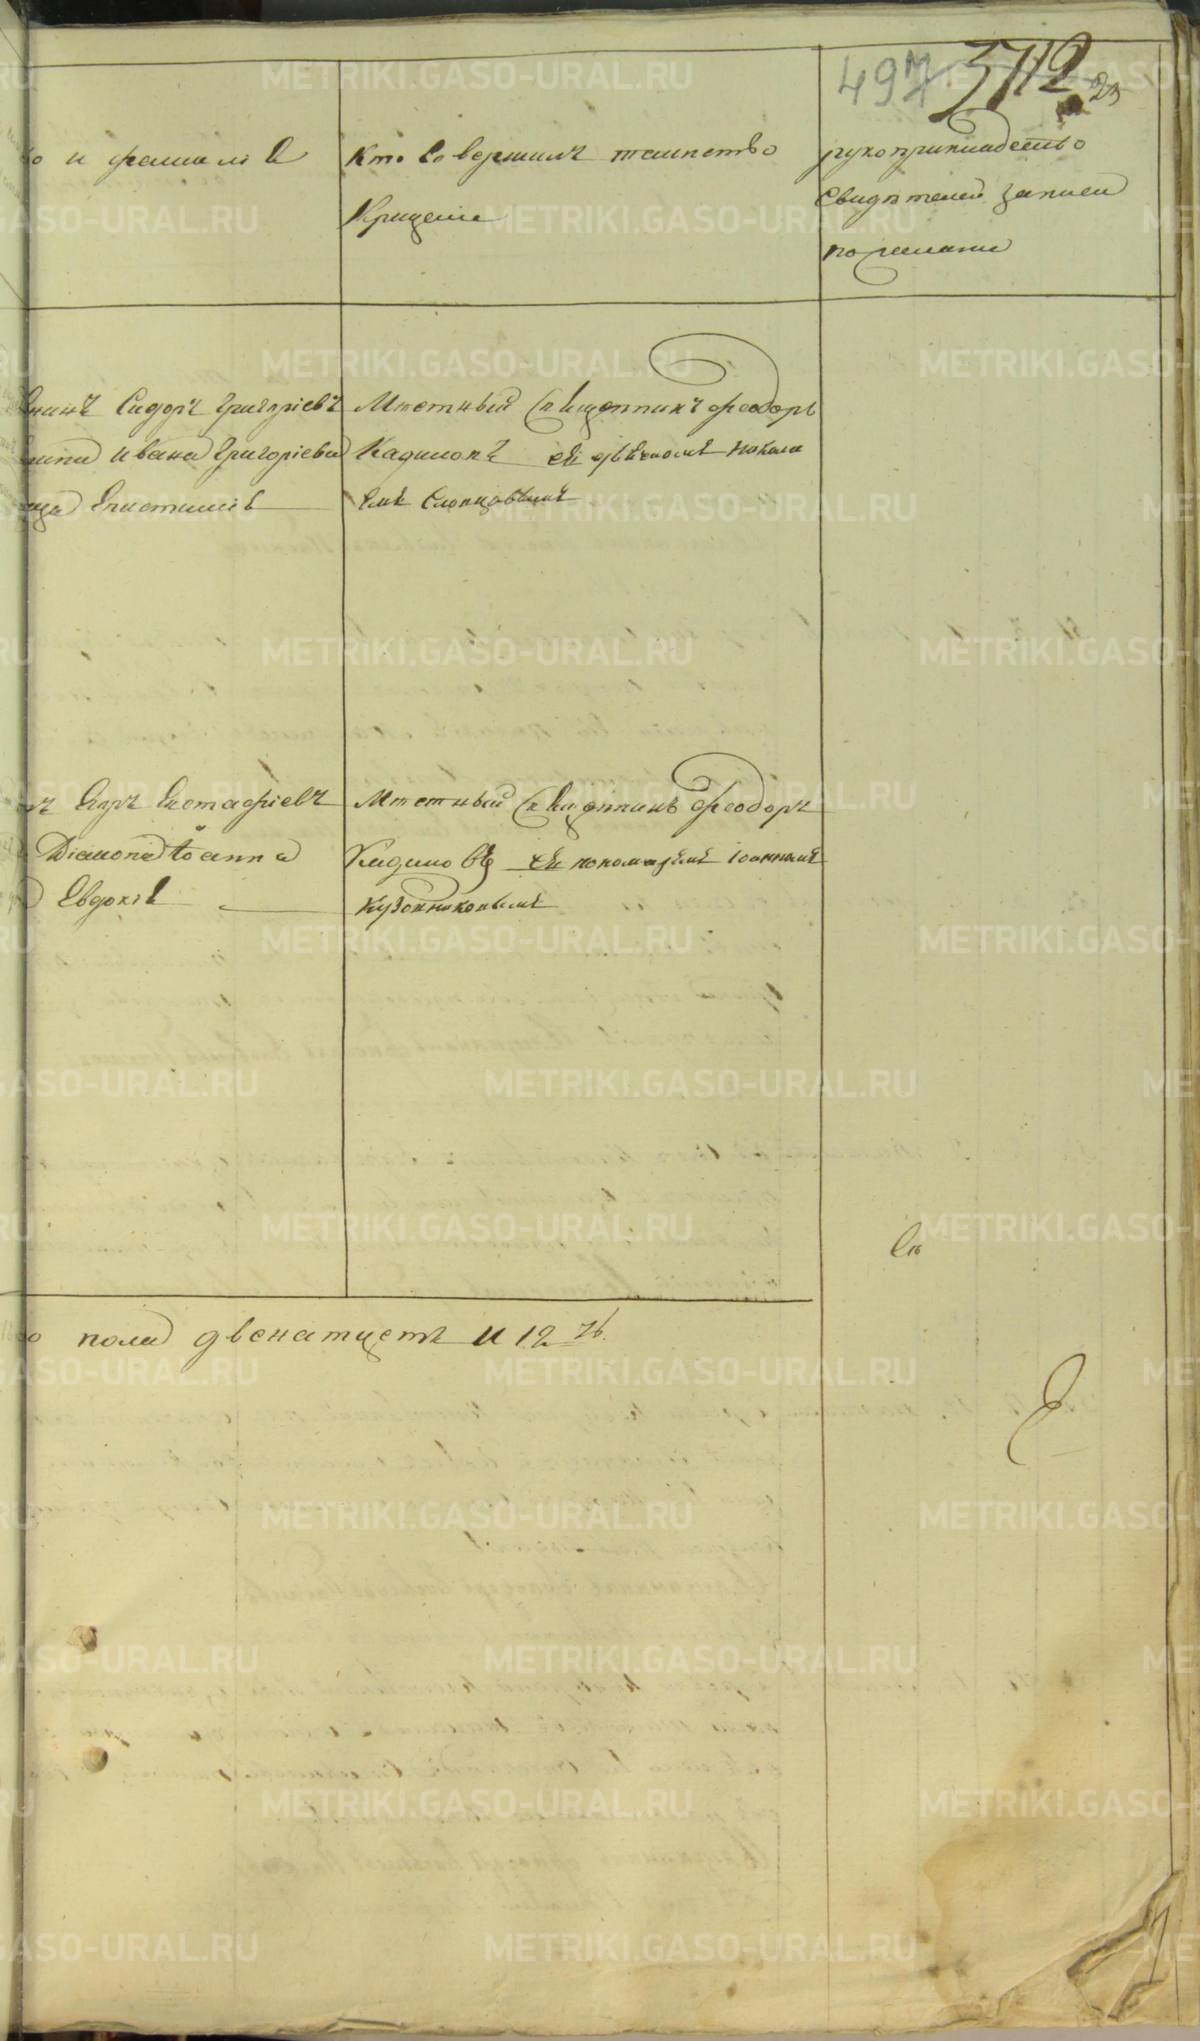 497 3712 23
о и фамилiя
Кто совершилъ таинство
Крещенiе
рукоприкладство
свидѣтелей записи
по желанiю
Сидоръ Григорiевъ
Ивана Григорiева
Мѣстный Священникъ Феодоръ
Кадимовъ съ дьячкомъ Никола
емъ Словцовымъ
ъ Егоръ Евстафiевъ
Дiакона Iоанна
Евдокiя
Мѣстный Священникъ Феодоръ
Кадимовъ съ пономаремъ Iоанномъ
Кузовниковымъ
Съ
о пола двенатцеть и 12 ть.